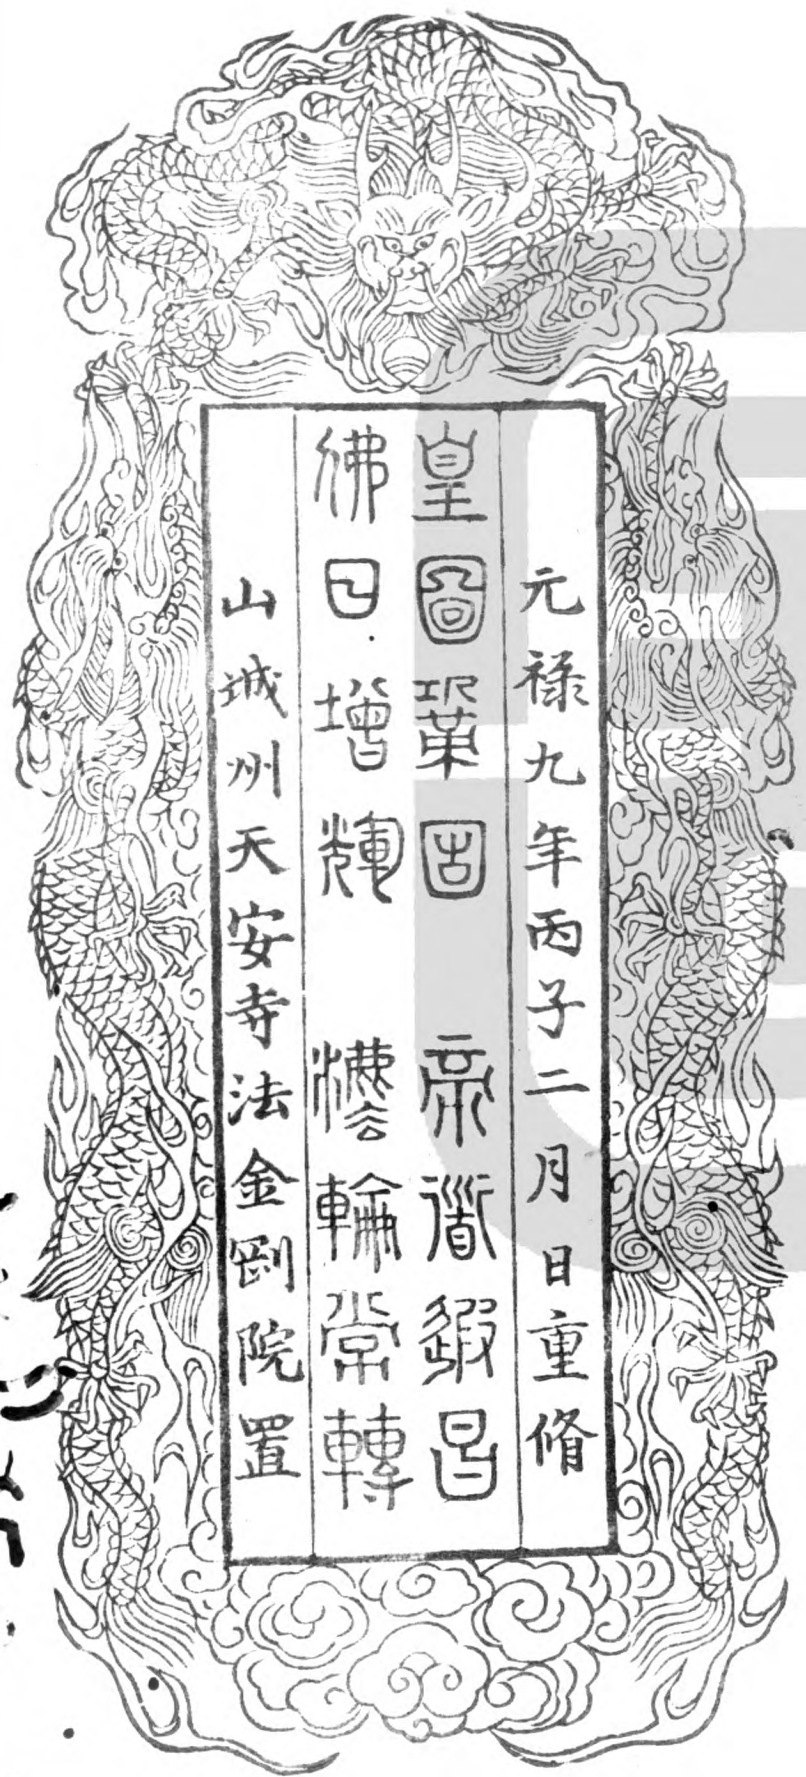 元禄九年丙子二月日重脩
皇圖鞏固帝道遐昌
佛日增輝灋輪常轉
山城州天安寺法金剛院置